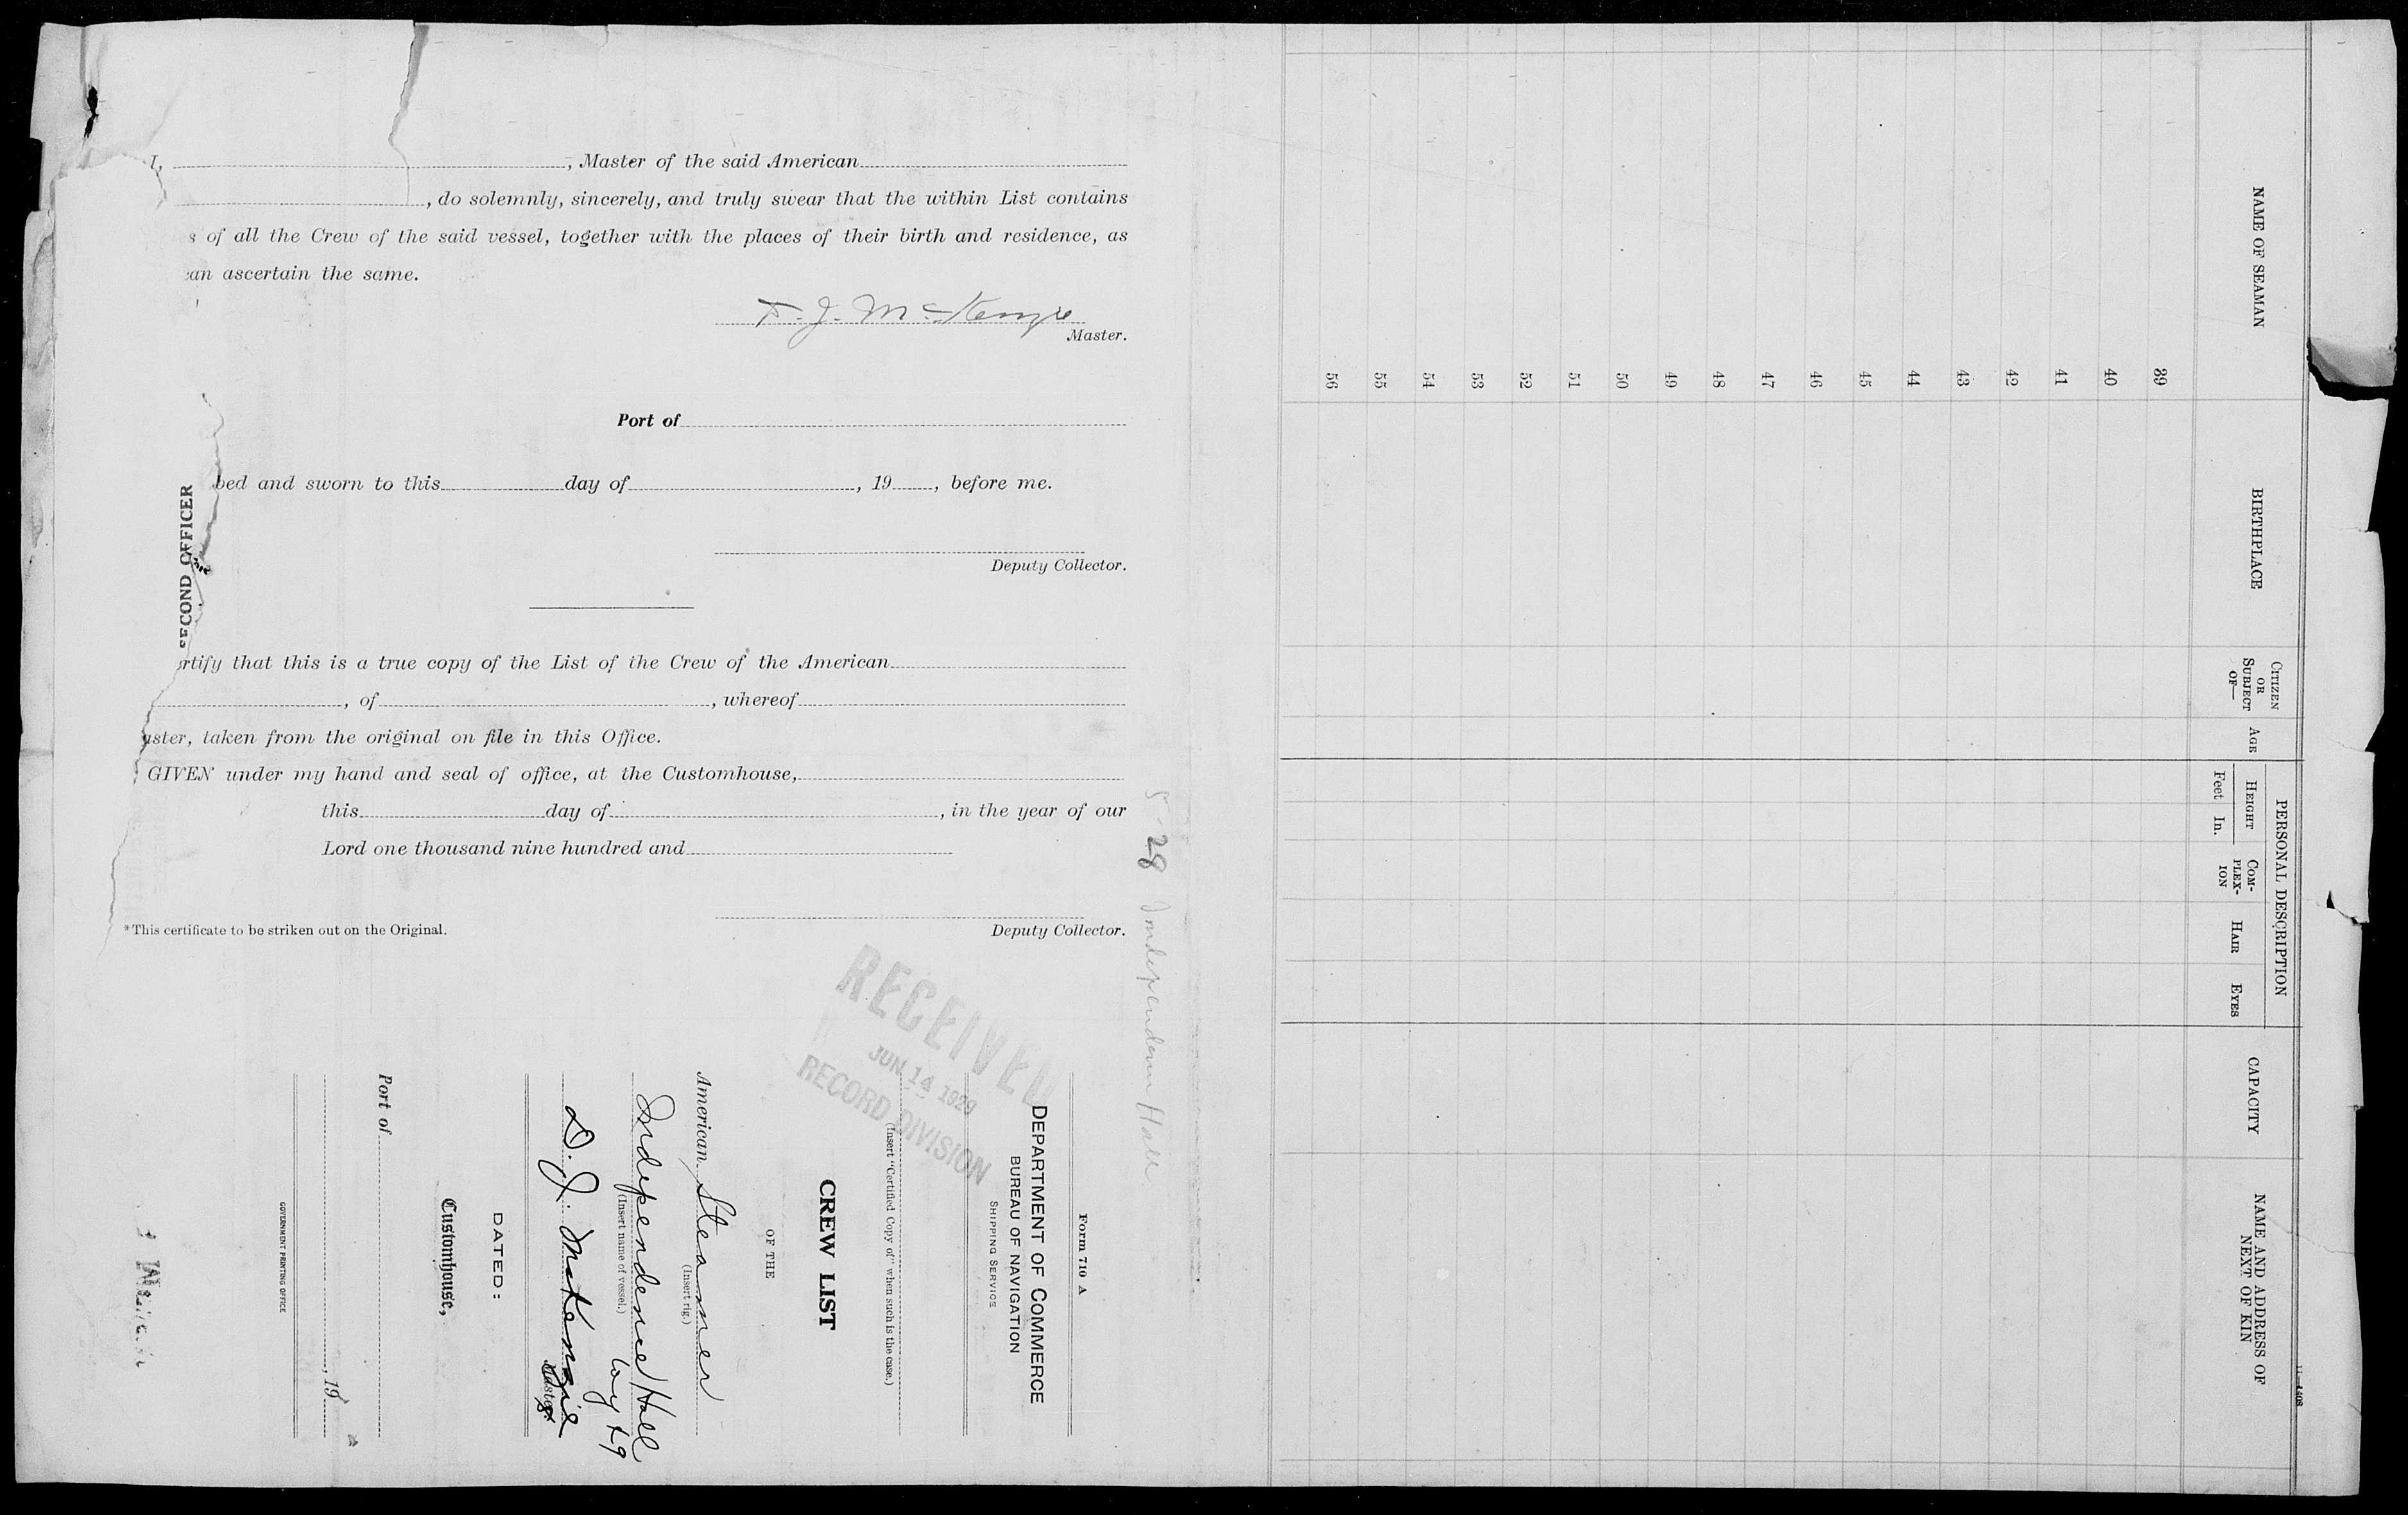 I, , Master of the said American
, do solemnly, sincerely, and truly swear that the within List contains
s of all the Crew of the said vessel, together with the places of their birth and residence, as
can ascertain the same.
McKenzie
Master.
Port of
bed and sworn to this day of , 19 , before me.
SECOND OFFICER
Deputy Collector.
rtify that this is a true copy of the List of the Crew of the American
, of , whereof
aster, taken from the original on file in this Office.
GIVEN under my hand and seal of office, at the Customhouse,
this day of , in the year of our
Lord one thousand nine hundred and
Deputy Collector.
*This certificate to be striken out on the Original.
28 Independence Hall
RECEIVED
JUN 14 1929
RECORD DIVISION
Form 710 A
DEPARTMENT OF COMMERCE
BUREAU OF NAVIGATION
SHIPPING SERVICE
(Insert "Certified Copy of" when such is the case.)
CREW LIST
OF THE
American Steamer
(Insert rig.)
Independence Hall
(Insert name of vessel.)
Voy 29
D. J. McKenzie
Master
DATED:
Customhouse,
Port of
, 19
GOVERNMENT PRINTING OFFICE
NAME OF SEAMAN
BIRTHPLACE
CITIZEN
OR
SUBJECT
OF—
AGE
PERSONAL DESCRIPTION
HEIGHT
Feet In.
COM-
PLEX-
ION
HAIR
EYES
CAPACITY
NAME AND ADDRESS OF
NEXT OF KIN
39
40
41
42
43
44
45
46
47
48
49
50
51
52
53
54
55
56